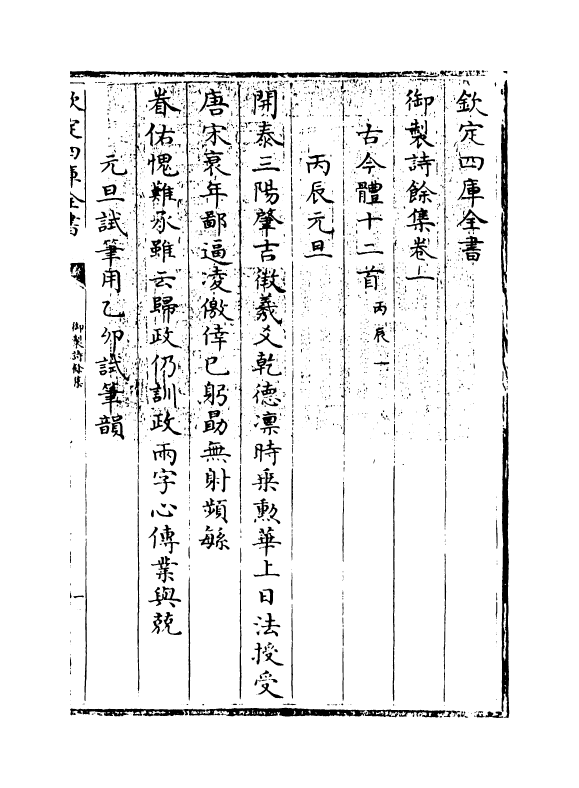 欽定四庫全書
御製詩餘集卷一
古今體十二首 丙辰一
丙辰元旦
開泰三陽肇吉徵羲爻乾德凛時乗勲華上日法授受
唐宋衰年鄙逼凌儌倖已躬勗無射頻緐
眷佑愧難承雖云歸政仍訓政兩字心傳業與兢
元旦試筆用乙夘試筆韻
欽定四庫全書
御製詩餘集
一